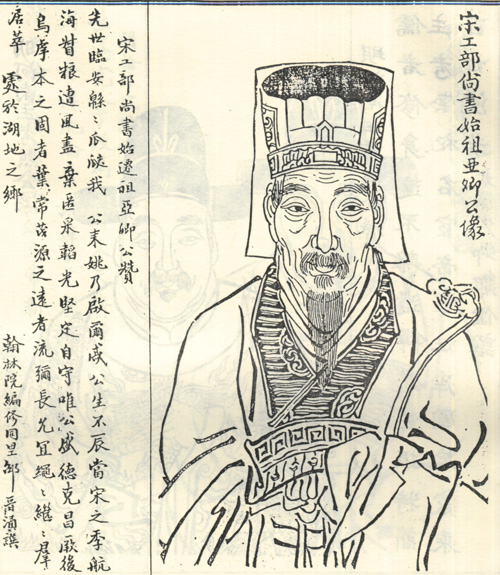 宋工部尚書始祖亞卿公像
宋工部尚書始遷祖亞卿公贊
先世臨安緜〻瓜瓞我 公来姚乃啟爾 公生不辰當宋之季航
海督粮遭風盡棄居泉韜光堅定自守唯公盛德克昌厥後
烏虖本之固者葉常茂源之遠者流彌長允宜繩〻繼〻羣
居萃 處於湖地之鄉
翰林院編修同里邵 晉涵譔